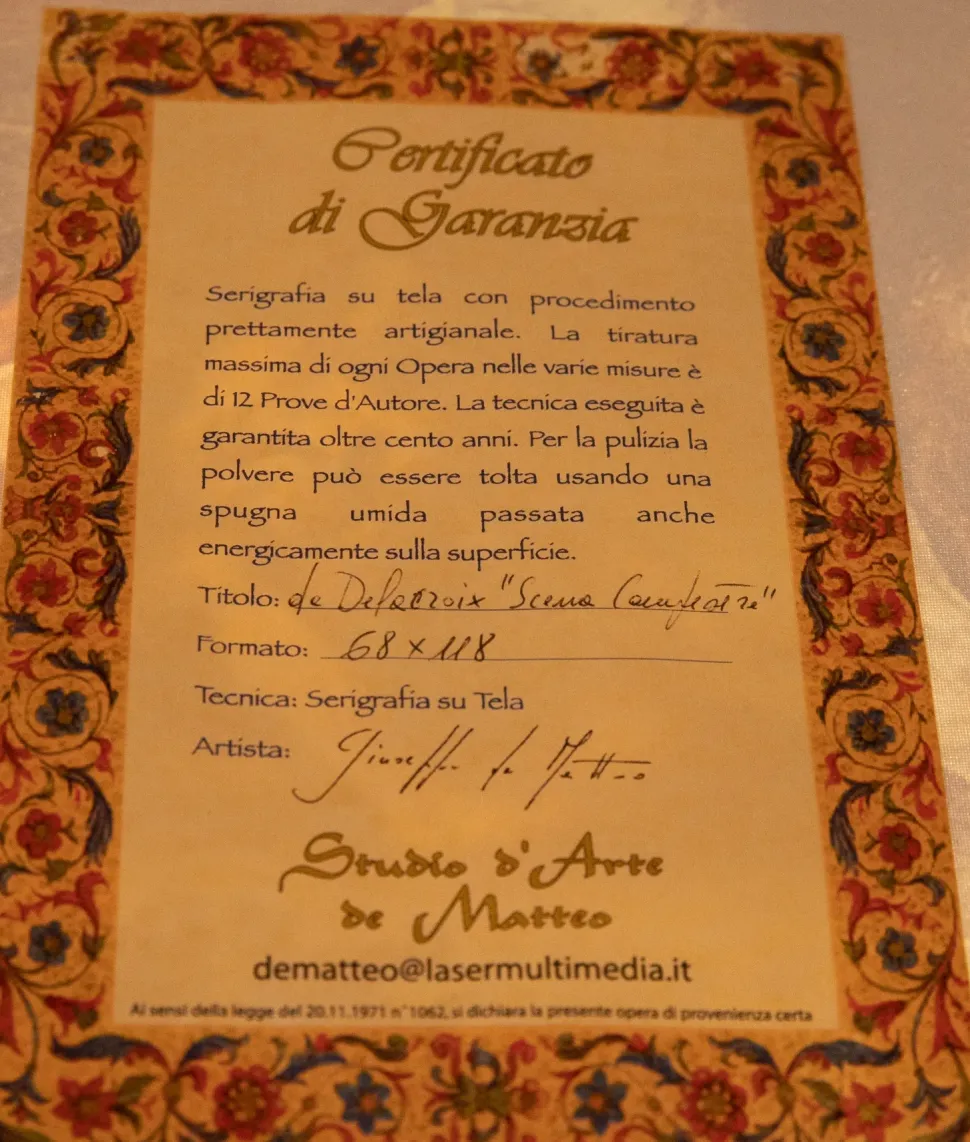 Certificato
di Garanzia
Serigrafia su tela con procedimento
prettamente artigianale. La tiratura
massima di ogni Opera nelle varie misure è
di 12 Prove d'Autore. La tecnica eseguita è
garantita oltre cento anni. Per la pulizia la
polvere può essere tolta usando una
spugna umida passata anche
energicamente sulla superficie.
Titolo: da Delacroix "Scena Campestre"
Formato: 68 x 118
Tecnica: Serigrafia su Tela
Artista: Giuseppe de Matteo
Studio d'Arte
de Matteo
dematteo@lasermultimedia.it
Ai sensi della legge del 20.11.1971 n°1062, si dichiara la presente opera di provenienza certa